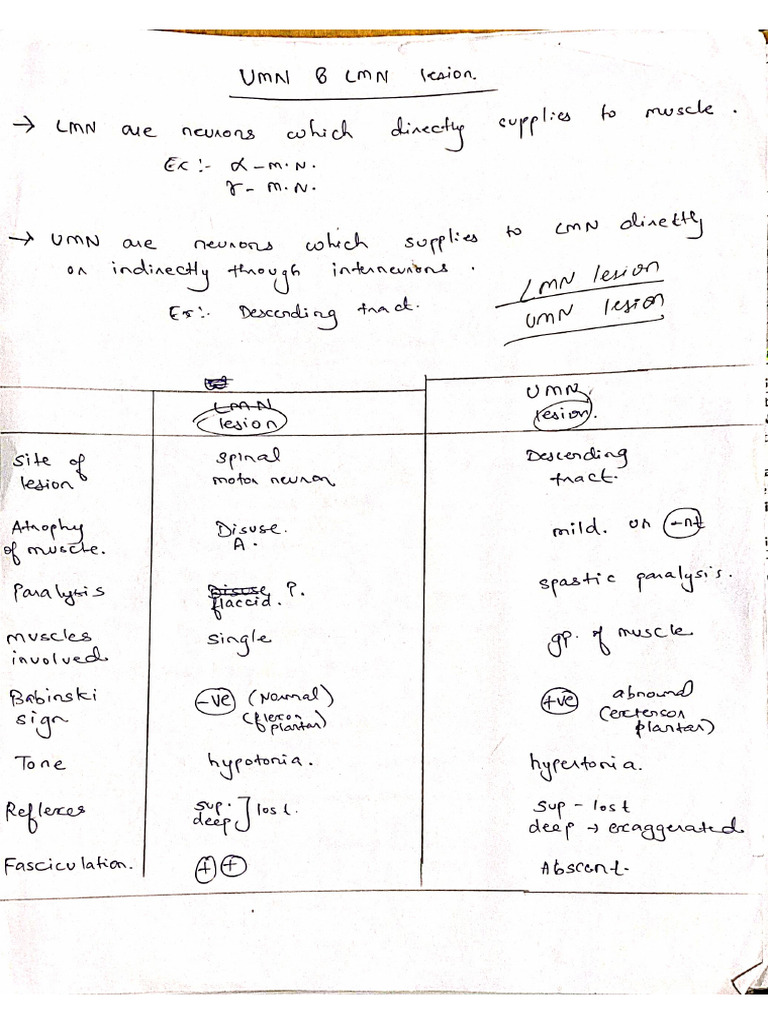 UMN & LMN lesion.
→ LMN are neurons which directly supplies to muscle.
Ex:- α - M.N.
γ - M.N.
→ UMN are neurons which supplies to LMN directly
or indirectly through interneurons.
Ex:- Descending tract.
LMN lesion
UMN lesion
LMN lesion
UMN lesion.
Site of lesion
Spinal motor neuron
Descending tract.
Atrophy of muscle.
Disuse. A.
mild. or -nt
Paralysis
Disuse P.
flaccid.
spastic paralysis.
muscles involved
single
gp. of muscle
Babinski sign
-ve (Normal) (flexor plantar)
+ve abnound (extensor plantar)
Tone
hypotonia.
hypertonia.
Reflexes
sup. deep ] lost.
sup - lost
deep → exaggerated
Fasciculation.
+ +
Abscent.